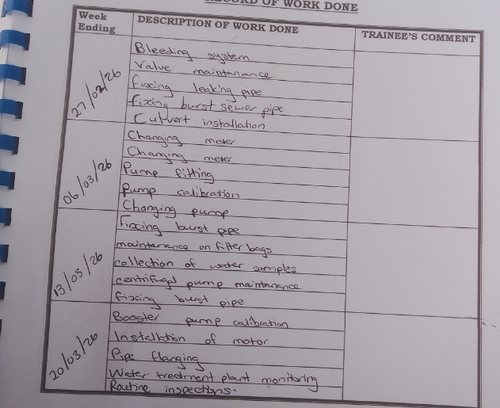 RECORD OF WORK DONE
Week Ending
DESCRIPTION OF WORK DONE
TRAINEE'S COMMENT
27/02/26
Bleeding system
Valve maintanance
Fixing leaking pipe
Fixing burst sewer pipe
Culvert installation
06/03/26
Changing meter
Changing meter
Pump fitting
Pump calibration
Changing pump
13/03/26
Fixing burst pipe
maintanance on filter bags
collection of water samples
centrifugal pump maintanance
Fixing burst pipe
20/03/26
Booster pump calibration
Installation of motor
Pipe flanging
Water treatment plant monitoring
Routine inspections.